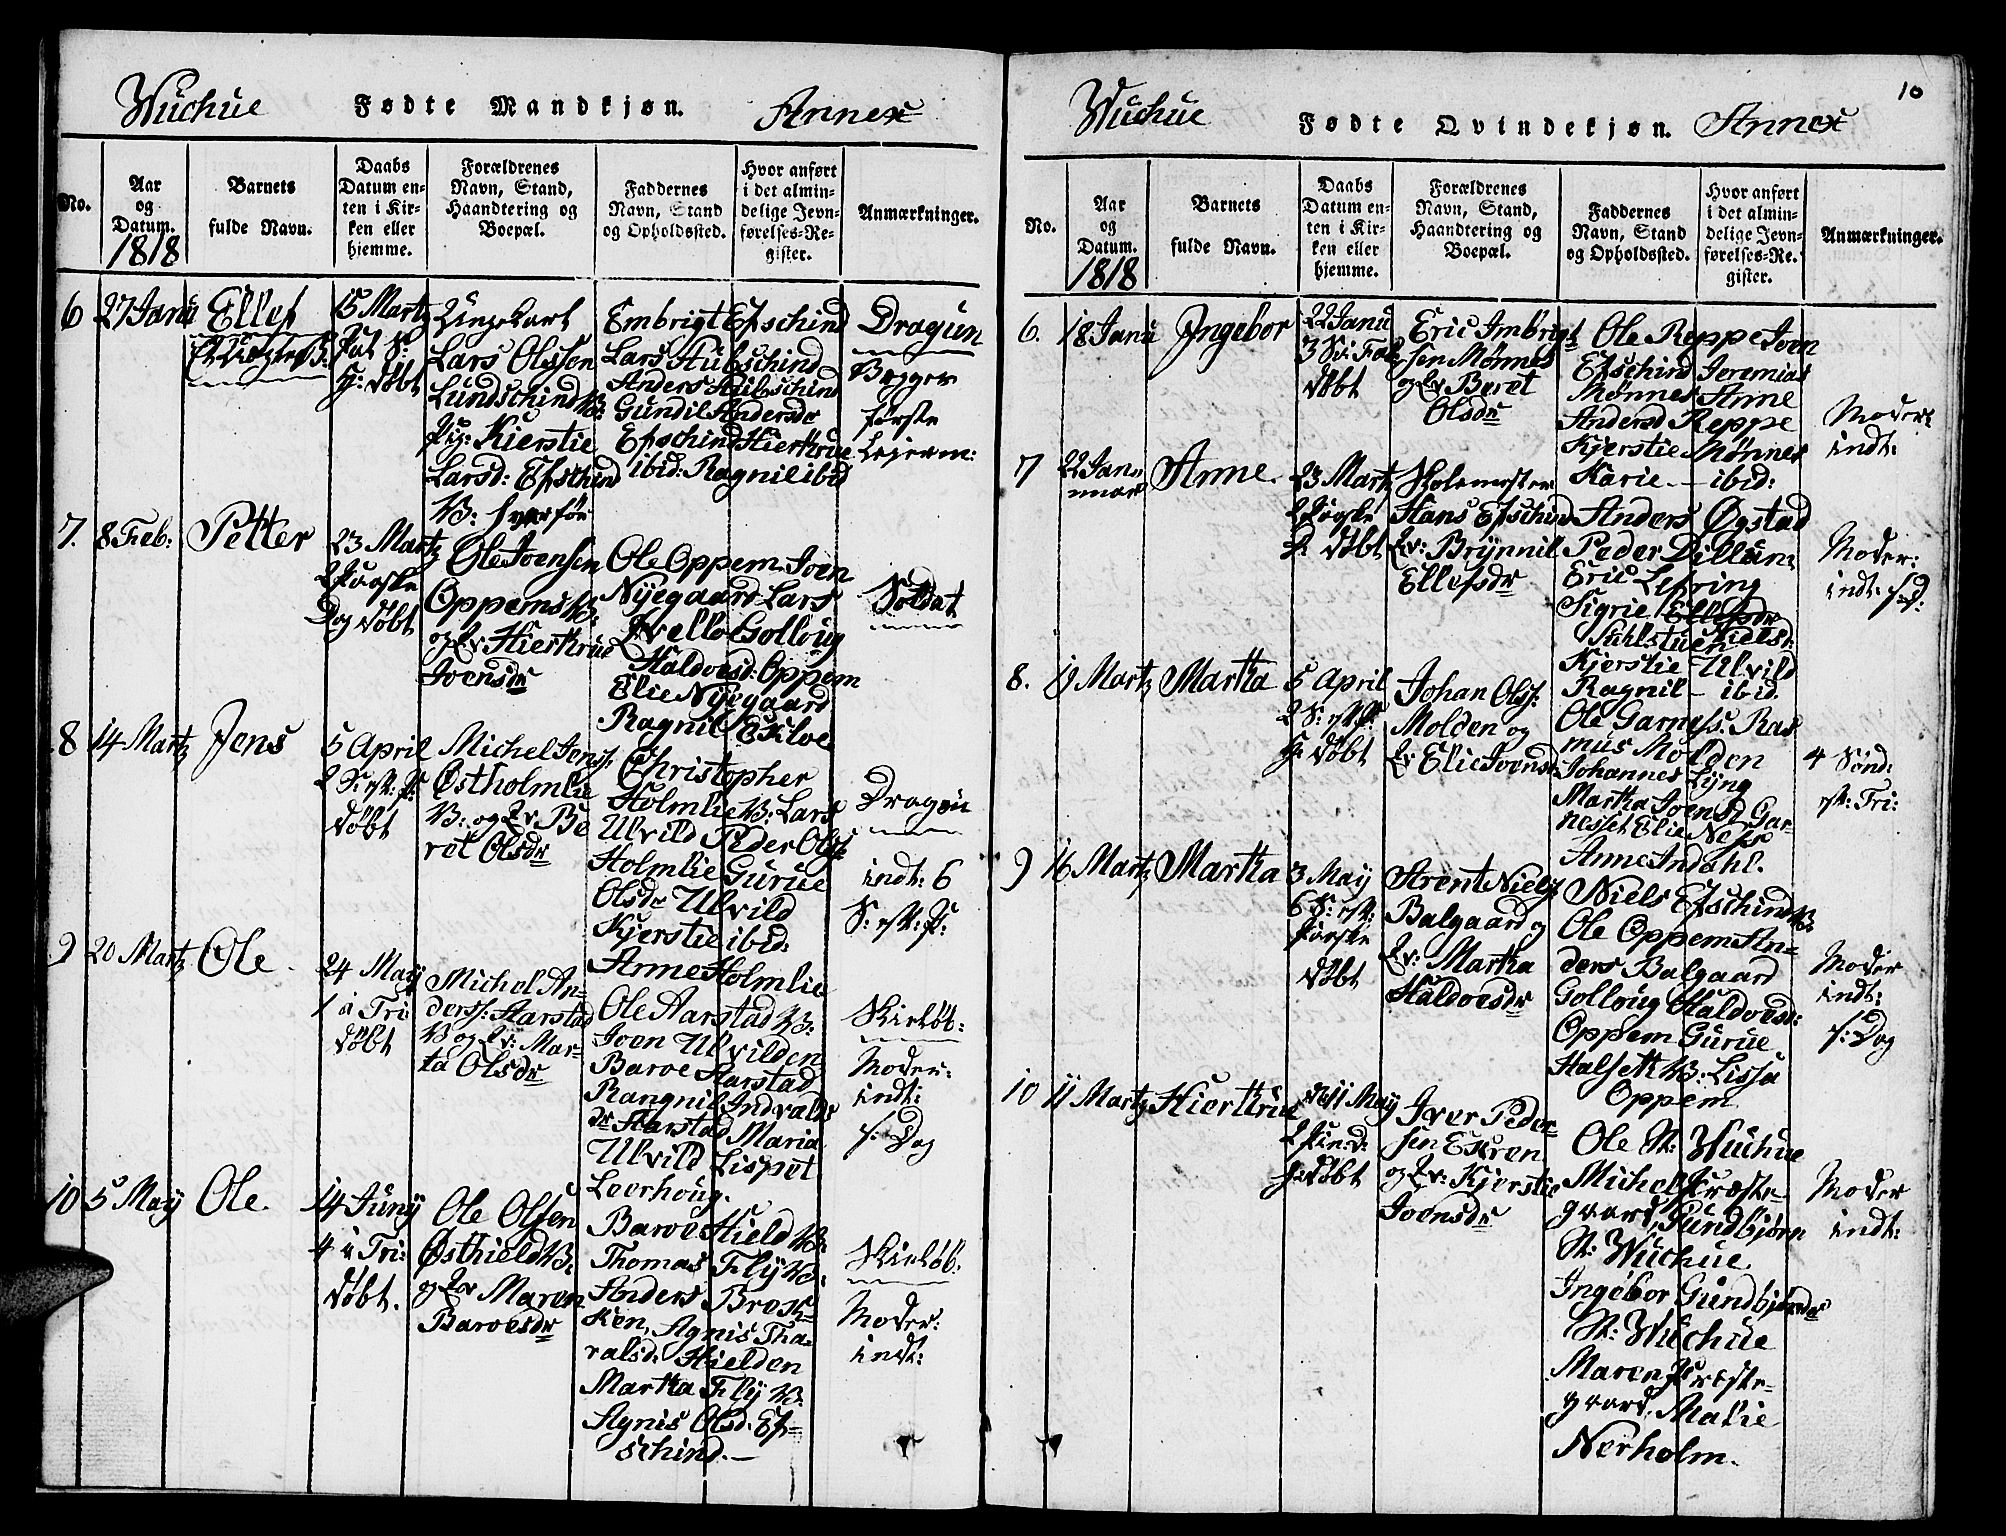 Wuchue Fødte Mandkjøn. Annex
No.
Aar
og
Datum.
1818
Barnets
fulde Navn.
Daabs
Datum en-
ten i Kir-
ken eller
hjemme.
Forældrenes
Navn, Stand,
Haandtering og
Boepæl.
Faddernes
Navn, Stand
og Opholdssted.
Hvor anført
i det almin-
delige Jevn-
førelses-Re-
gister.
Anmærkninger.
6 27 Janu Ellef
15 Martz
døbt
Ungekarl
Lars Olssen
Lundschind
Pig: Kierstie
Larsd: Efschind
Embrigt Efschind
Lars Hubschind
Anders Hubschind
Gundil Andersdr
Efschind Hierthrue
ibid: Ragnil ibid
Dragun
Begges
første
Leierm:
7. 8 Feb: Petter
23 Martz
2 Paaske
Dag døbt
Ole Joensen
Oppem
og Hierthrue
Joensdr
Ole Oppem Joen
Nyegaard Lars
Gollaug
Haldoesd: Oppem
Elie Nyegaard
Ragnil
Soldat
8 14 Martz Jens
5 April
døbt
Michel Jens:
Østholmlie
og Be
ret Olsdr
Christopher
Holmlie Lars
Ulvild Peder Ols:
Holmlie Gurue
Olsdr Ulvild
Kjerstie ibid:
Anne Holmlie
Dragun
indt: 6
9 20 Martz Ole.
24 May
1 a Tri
døbt
Michel An-
derss: Aarstad
og Mar-
ta Olsdr
Ole Aarstad
Joen Ulvilden
Baroe Aarstad
Rangnil Indvalds
dr Aarstad Maria
Ulvild Lispet
Leerhoug.
Skieløb:
Moder:
indt:
s: Dag
10 5 May Ole.
14 Juny
4 a Tri:
døbt.
Ole Olsen
Østhield
og Maren
Baroesdr
Baroe Hield
Thomas Fly
Anders Bros-
ken, Agnis Tha-
ralsd: Hielden
Martha Fly
Agnis Olsd: Ef-
schind.
Skieløb:
Moder:
indt:
10
Wuchue Fødte Qvindekjøn. Annex
No.
Aar
og
Datum.
1818
Barnets
fulde Navn.
Daabs
Datum en-
ten i Kir-
ken eller
hjemme.
Forældrenes
Navn, Stand,
Haandtering og
Boepæl.
Faddernes
Navn, Stand
og Opholdssted.
Hvor anført
i det almin-
delige Jevn-
førelses-Re-
gister.
Anmærkninger.
6. 18 Janu Ingebor
22 Janu
døbt
Eric Imbrigt
sen Mønnes
og Beret
Olsdr
Ole Reppe Joen
Efschind Jeremias
Mønnes Anne
Andersd Reppe
Kjerstie Mønnes
Karie ibid:
Moder:
indt:
7 22 Jan
nuar Anne.
23 Martz
2 Paaske
D døbt
Skolemester
Hans Efschind
Brynnil
Ellefsdr
Anders Øgstad
Peder Dillun
Eric Lefring
Sigrie Ellefsdr
Kjerstie Ulvild
Ragnil ibid
Moder:
indt: s: D:
8. 19 Martz Martha
5 April
døbt
Johan Ols:
Molden og
Elie Joensdr
Ole Garness: Ras
mus Molden
Johannes Lyng
Martha Joensd Gar-
nesset Elie Ness
Anne Indahl.
4 Sønd:
Tri:
9 16 Martz Martha
3 May
Paaske
døbt
Arent Niels
Balgaard og
Martha
Haldoesdr
Niels Efschind
Ole Oppem An-
ders Balgaard
Gollaug Haldoesd:
Oppem Gurue
Halseth Lissa
Oppem
Moder
indt:
s: Dag
10 11 Martz Hierthrue
11 May
døbt
Iver Peder-
sen Estren
og Kjerstie
Joensdr
Ole Wuchue
Michel Præste-
gaard, Gundbjørn
Wuchue
Ingebor Gundbjørnsdr
Wuchue
Maren Præste-
gaard, Malie
Nerholm.
Moder
indt: